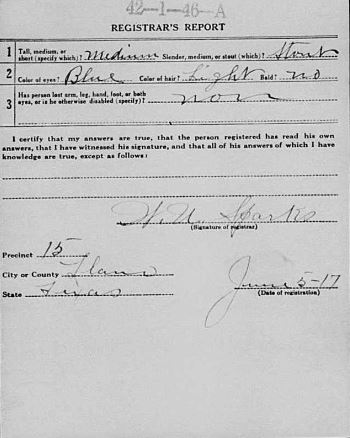 42-1-46-A
REGISTRAR'S REPORT
1 Tall, medium, or short (specify which)? Medium Slender, medium, or stout (which)? Stout
2 Color of eyes? Blue Color of hair? Light Bald? no
3 Has person lost arm, leg, hand, foot, or both eyes, or is he otherwise disabled (specify)? non
I certify that my answers are true, that the person registered has read his own
answers, that I have witnessed his signature, and that all of his answers of which I have
knowledge are true, except as follows:
Sparks
(Signature of registrar)
Precinct 15
City or County Llano
State Texas
June 5-17
(Date of registration)